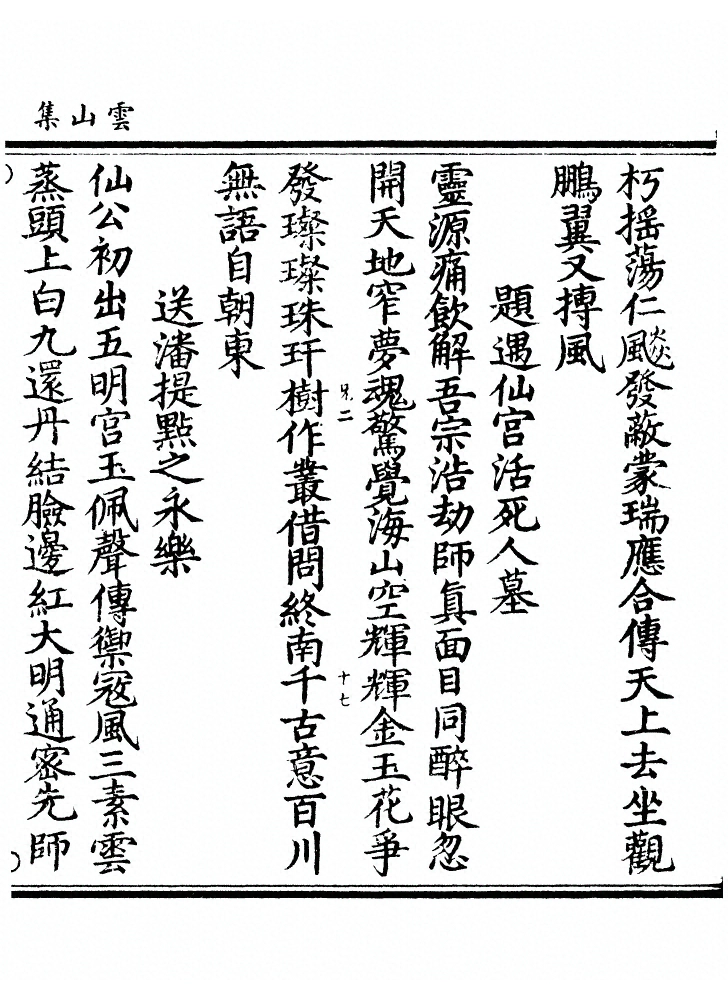 雲山集
朽摇蕩仁風飈發敵蒙瑞應合傳天上去坐觀
鵬翼又摶風
題遇仙宮活死人墓
靈源痛飲解吾宗沿劫師眞面目同醉眼忽
開天地窄夢魂驚覺海山空輝輝金玉花爭
兄二
十七
發璨璨珠玕樹作叢借問終南千古意百川
無語自朝東
送潘提點之永樂
仙公初出五明宮玉佩聲傳禦寇風三素雲
蒸頭上白九還丹結臉邊紅大明通密先師